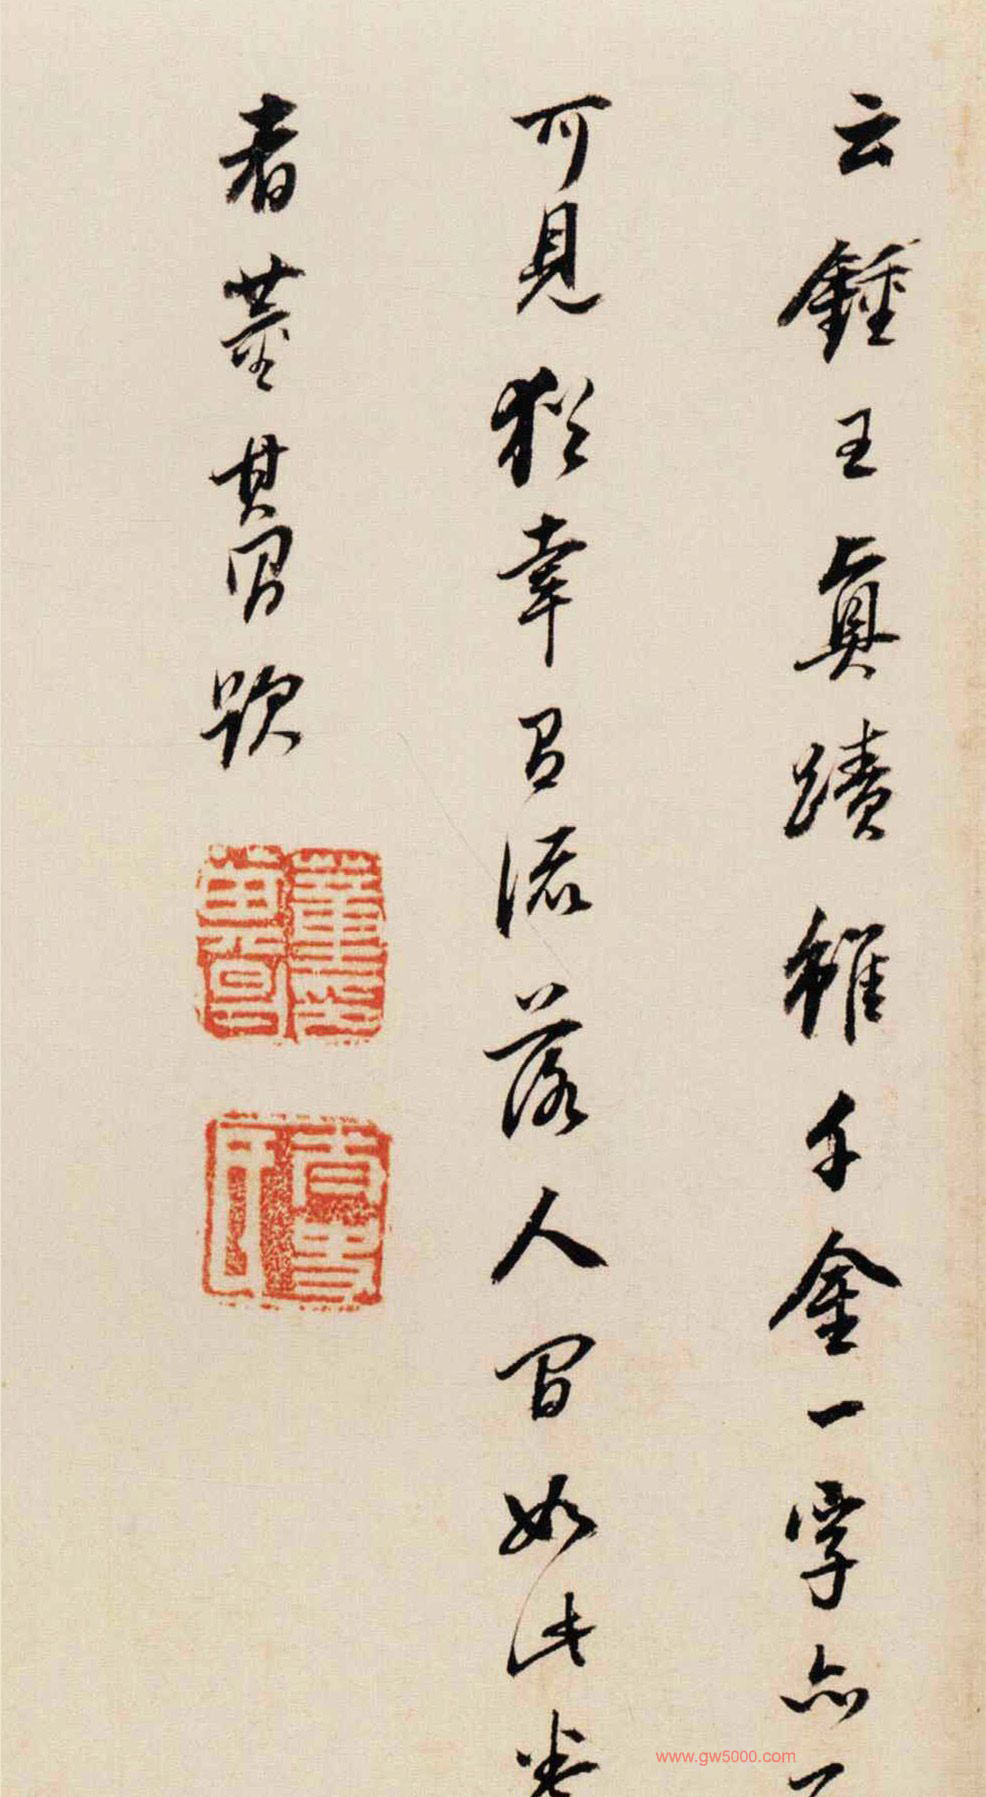 云鍾王真蹟雖千金一字亦不
可見猶幸有流落人間如此卷
者董其昌跋
董其昌
www.gw5000.com